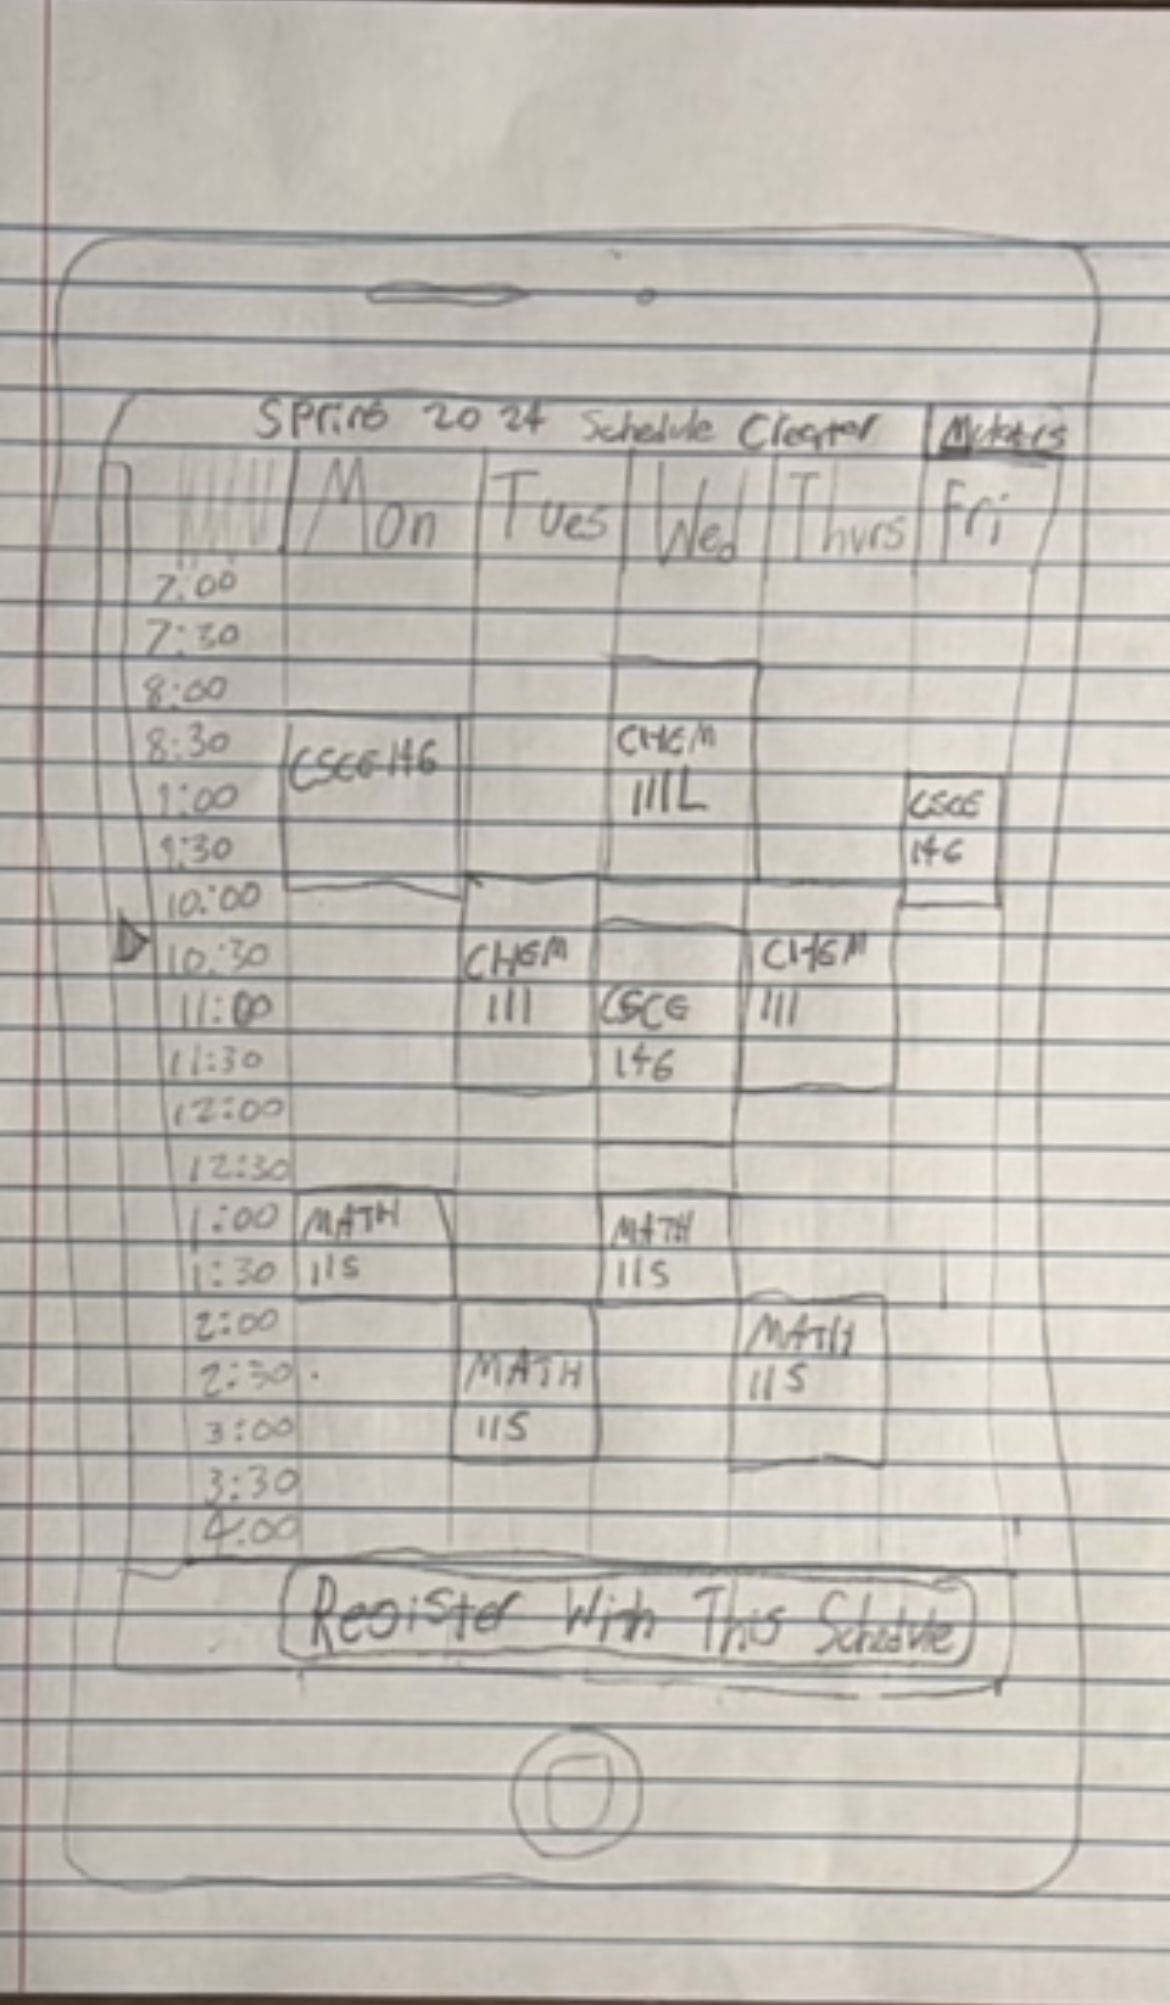 Spring 2024 Schedule Creator
Mon Tues Wed Thurs Fri
7:00
7:30
8:00
8:30
CSCE 146
CHEM
111L
9:00
CSCE
146
9:30
10:00
10:30
CHEM
111
CHEM
111
11:00
CSCE
146
11:30
12:00
12:30
1:00
MATH
115
MATH
115
1:30
2:00
MATH
115
2:30
MATH
115
3:00
3:30
4:00
Register With This Schedule